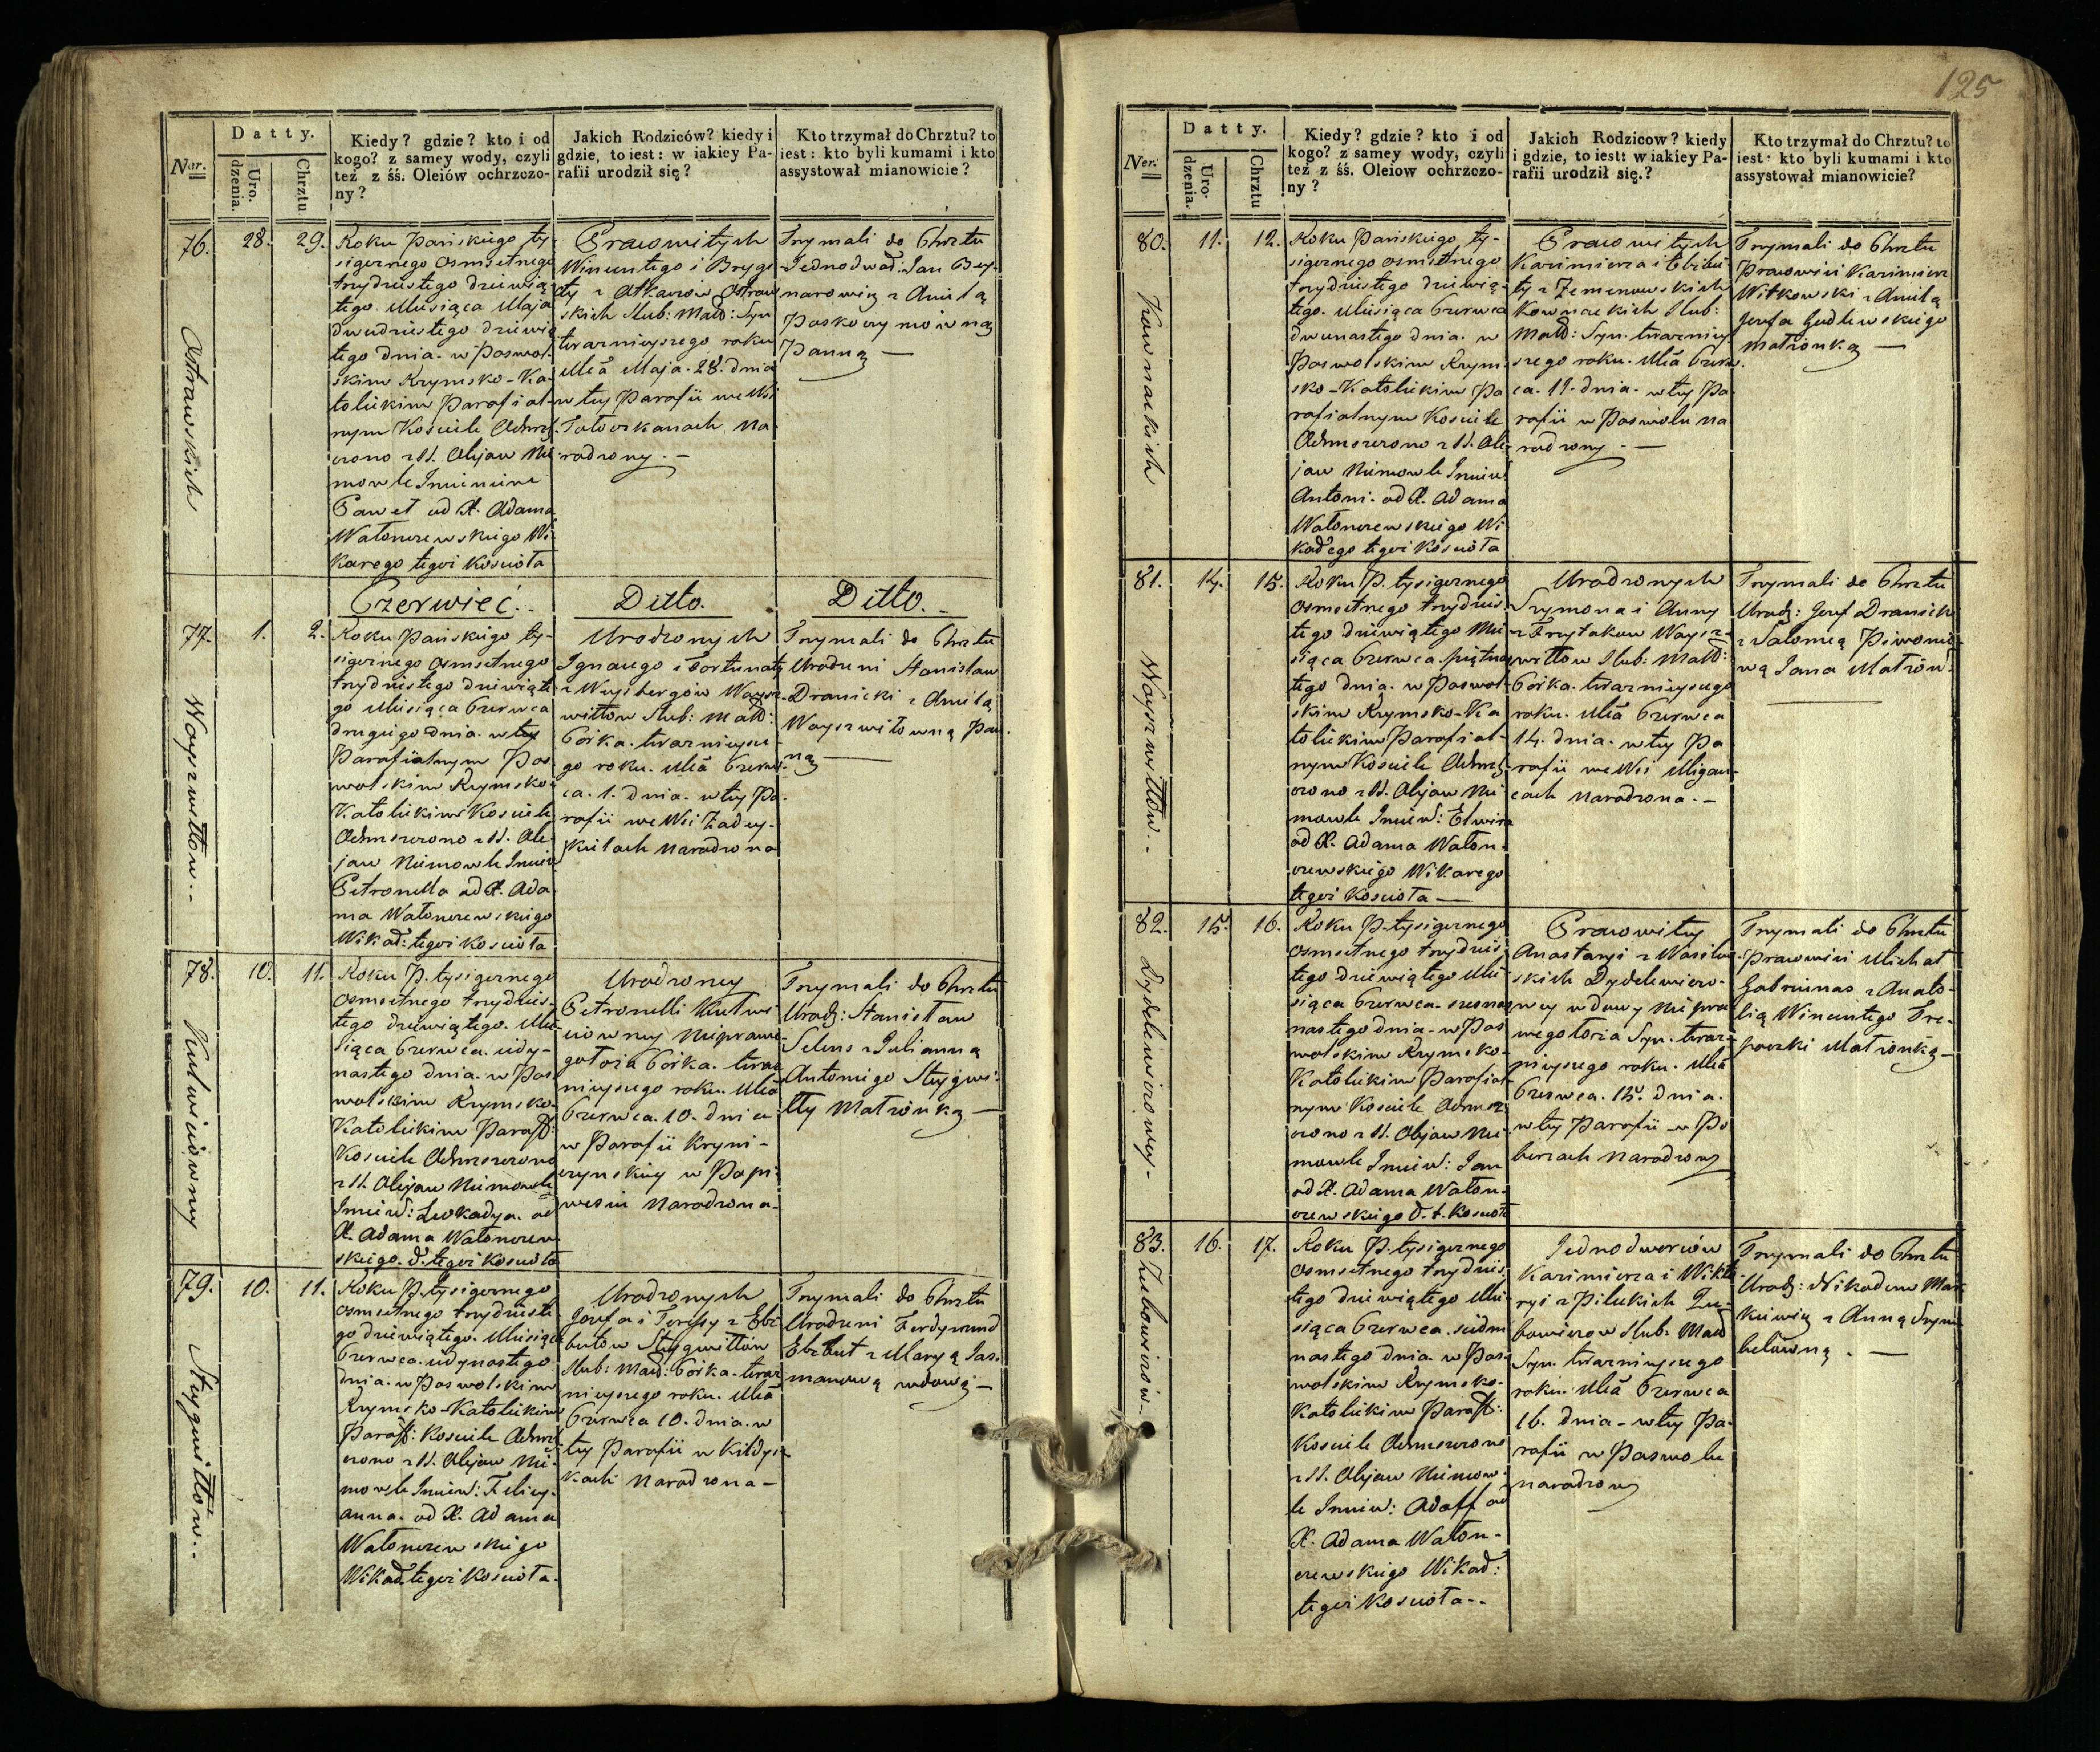 125
Datty.
Ner.
Uro.
dzenia.
Chrztu
Kiedy? gdzie? kto i od
kogo? z samey wody, czyli
też z śś. Oleiów ochrzczo-
ny?
Jakich Rodziców? kiedy i
gdzie, to iest: w iakiey Pa-
rafii urodził się?
Kto trzymał do Chrztu? to
iest: kto byli kumami i kto
assystował mianowicie?
76.
Ostrawskich
28.
29.
Roku Pańskiego ty-
siącznego osmsetnego
trzydziestego dziewią-
tego. Miesiąca Maja
dwudziestego dziewią
tego dnia. w Poswol-
skim Rzymsko-Ka-
tolickim Parafial-
nym Kościele Ochrzcz-
czono z SS. Olejow Nie
mowle Imieniem
Paweł od X. Adama
Watonczewskiego Wi-
karego tegoż Kościoła
Prawowitych
Wincentego i Brygi
ty z Atkanow Ostraw
skich Slub: Małż: Syn
teraźnieyszego roku
Mca Maja. 28. dnia
w tey Parafii we Wsi
Tatorkanach na
rodzony. -
Trzymali do Chrztu
Jednodwo: Jan Bey-
narowicz z Anielą
Paszkowymowną
Panną —
Czerwiec.
Ditto.
Ditto.-
77.
Wayszwiłłow.-
1.
2.
Roku Pańskiego ty-
siącznego osmsetnego
trzydziestego dziewiąte
go Miesiąca Czerwca
drugiego dnia. w tey
Parafialnym Pos
wolskim Rzymsko-
Katolickim Kościele
Ochrzczono z SS. Ole
jow Niemowle Imien
Petronella od X. Ada
ma Watonczewskiego
Wikar: tegoż Kościoła
Urodzonych
Ignacego i Fortunaty
z Waysbergów Waysz-
wiłłow Slub: Małż:
Córka. teraźnieysze-
go roku. Mca Czerw-
ca. 1. dnia. w tey Pa-
rafii we Wsi Zadey-
kielach narodzona
Trzymali do Chrztu
Urodzeni Stanisław
Dranicki z Anielą
Wayszwiłowną Pan-
ną —
78.
Kutwiciowny
10.
11.
Roku P. tysiącznego
osmsetnego trzydzies-
tego dziewiątego. Mie-
siąca Czerwca. iedy-
nastego dnia. w Pos
wolskim Rzymsko-
Katolickim Paraff:
Kościele Ochrzczono
z SS. Olejow Niemowle
Imien: Leokadya. od
X. Adama Watonczew
skiego. d. tegoż Kościoła
Urodzoney
Petronelli Kutwi
ciowney Nieprawe-
gołoża Córka. teraz
nieyszego roku. Mca
Czerwca. 10. dnia
w Parafii Kryni-
czynskiey w Popi-
wesiu Narodzona.
Trzymali do Chrztu
Urodz: Stanisław
Selens z Julianną
Antoniego Stygwi-
łły Małżonką —
79.
Stygwiłłów.-
10.
11.
Roku P. tysiącznego
osmsetnego trzydzieste
go dziewiątego. Miesiąca
Czerwca iedynastego
dnia. w Poswolskim
Rzymsko-Katolickim
Paraff: Kościele Ochrz
czono z SS. Olejow Nie-
mowle Imien: Felicy-
anna. od X. Adama
Watonczewskiego
Wikar. tegoż Kościoła.
Urodzonych
Jozefa i Teressy z Ebe
butow Stygwiłłów
Slub: Małż: Córka. teraz
nieyszego roku. Mca
Czerwca 10. dnia. w
tey Parafii w Kiłdysz
kach Narodzona-
Trzymali do Chrztu
Urodzeni Ferdynand
Ebebut z Maryą Jas-
manową wdową —
Datty.
Ner.
Uro.
dzenia.
Chrztu
Kiedy? gdzie? kto i od
kogo? z samey wody, czyli
też z śś. Oleiow ochrzczo-
ny?
Jakich Rodzicow? kiedy
i gdzie, to iest: w iakiey Pa-
rafii urodził się.?
Kto trzymał do Chrztu? to
iest: kto byli kumami i kto
assystował mianowicie?
80.
Kownackich
11.
12.
Roku Pańskiego ty-
siącznego osmsetnego
trzydziestego dziewią-
tego. Miesiąca Czerwca
dwunastego dnia. w
Poswolskim Rzym-
sko-Katolickim Pa
rafialnym Kościele
Ochrzczono z SS. Ole-
jow Niemowle Imien:
Antoni. od X. Adama
Watonczewskiego Wi
karego tegoż Kościoła
Prawowitych
Kazimierza i Elżbie
ty z Zemenowskich
Kownackich Slub:
Małż: Syn. teraźniey
szego roku. Mca Czerw-
ca. 11. dnia. w tey Pa
rafii w Poswolu na
rodzony. —
Trzymali do Chrztu
Prawowici Kazimierz
Witkowski z Anielą
Jozefa Gudlewskiego
Małżonką —
81.
Wayszwiłłów.-
14.
15.
Roku P. tysiącznego
osmsetnego trzydzies-
tego dziewiątego Mie
siąca Czerwca piętnas
tego dnia. w Poswol-
skim Rzymsko-Ka
tolickim Parafial-
nym Kościele Ochrz-
czono z SS. Olejow Nie
mowle Imien: Elwira
od X. Adama Waton-
czewskiego Wikarego
tegoż Kościoła —
Urodzonych
Szymona i Anny
z Przytakow Waysz-
wiłłow Slub: Małż:
Córka. teraźnieyszego
roku. Mca Czerwca
14. dnia. w tey Pa
rafii we Wsi Migan-
cach narodzona. -
Trzymali do Chrztu
Urodz: Jozef Dranicki
z Salomeą Piwonio-
wą Jana Małżon:
82.
Dydelewiczowey-
15.
16.
Roku P. tysiącznego
osmsetnego trzydzies-
tego dziewiątego Mie
siąca Czerwca. szesnas
nastego dnia. w Pos
wolskim Rzymsko-
Katolickim Parafial-
nym Kościele Ochrz-
czono z SS. Olejow Nie-
mowle Imien: Jan
od X. Adama Waton-
czewskiego d. t. Kościoła
Prawowitey
Anastazyi z Wasilew-
skich Dydelewiczo-
wey wdowy Niepra
wegołoża Syn. teraz-
nieyszego roku. Mca
Czerwca. 15. dnia.
w tey Parafii w Po
berzach narodzony
Trzymali do Chrztu
Prawowici Michał
Gabrunas z Anato-
lią Wincentego Tre-
poczki Małżonką-
83.
Zubowiczów-
16.
17.
Roku P. tysiącznego
osmsetnego trzydzies-
tego dziewiątego Mie-
siąca Czerwca. siedm
nastego dnia. w Pos-
wolskim Rzymsko-
Katolickim Paraff:
Kościele Ochrzczono
z SS. Olejow Niemow-
le Imien: Adolff od
X. Adama Waton-
czewskiego Wikar:
tegoż Kościoła.-
Jednodworców
Kazimierza i Wikto
ryi z Pileckich Zu-
bowiczow Slub: Małż
Syn. teraźnieyszego
roku. Mca Czerwca
16. dnia - w tey Pa-
rafii w Poswolu
narodzony
Trzymali do Chrztu
Urodz: Nikodem Mac
kiewicz z Anną Szym
belówną. —